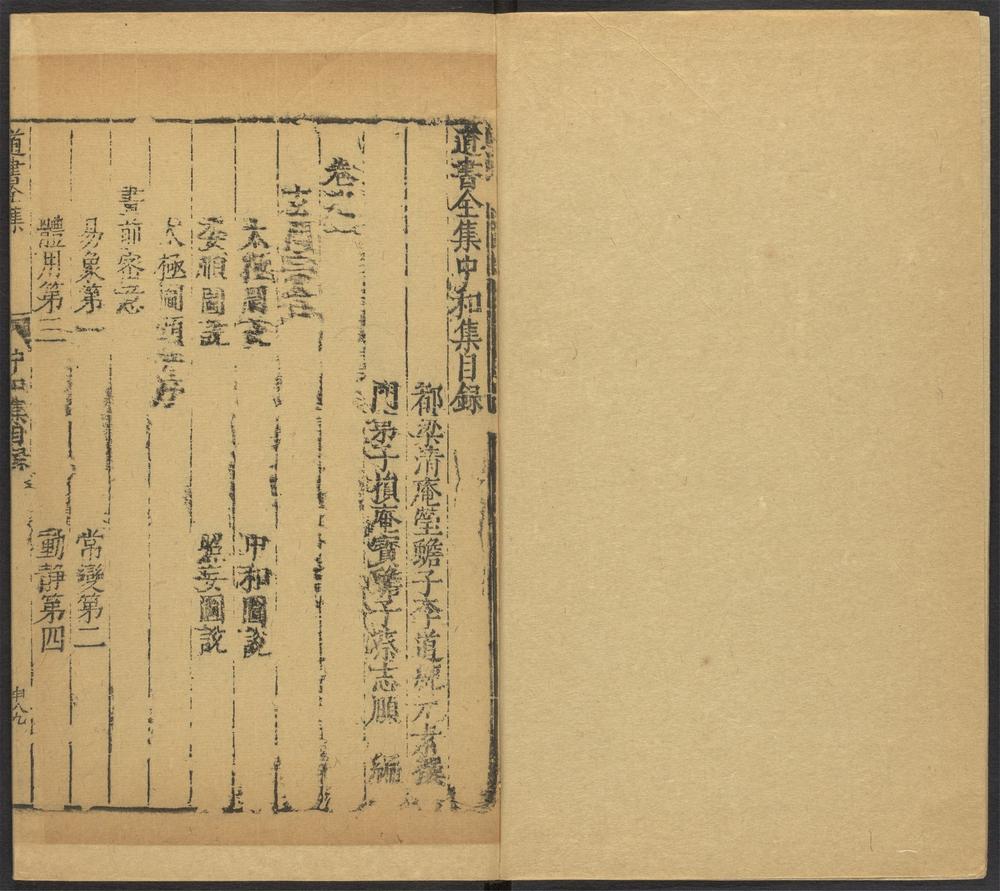 道書全集中和集目録
都梁清庵瑩蟾子李道純元素撰
門弟子損庵寶蟾子蔡志願 編
卷之一
玄門宗旨
太極圖說 中和圖說
委順圖說 照妄圖說
太極圖頌并序
畫前密意
易象第一 常變第二
體用第三 動靜第四
道書全集 中和集目錄